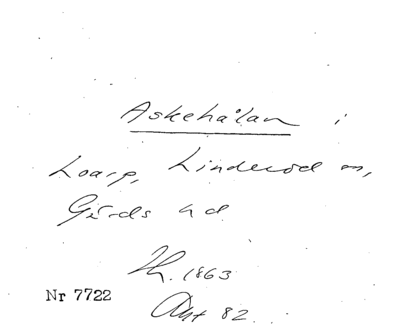 Askehålan i
Loarp, Linderöd sn,
Gärds hd
1863
Nr 7722
Akt 82.